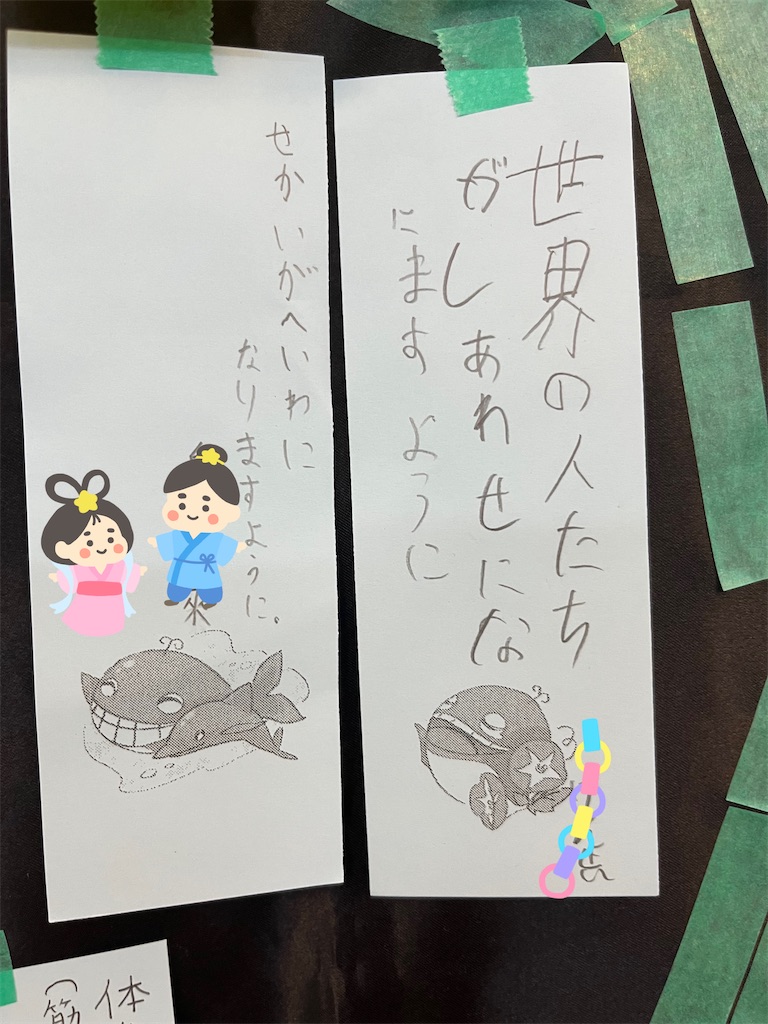 世界の人たち
がしあわせにな
にますように
せかいがへいわに
なりますように。
体
(筋